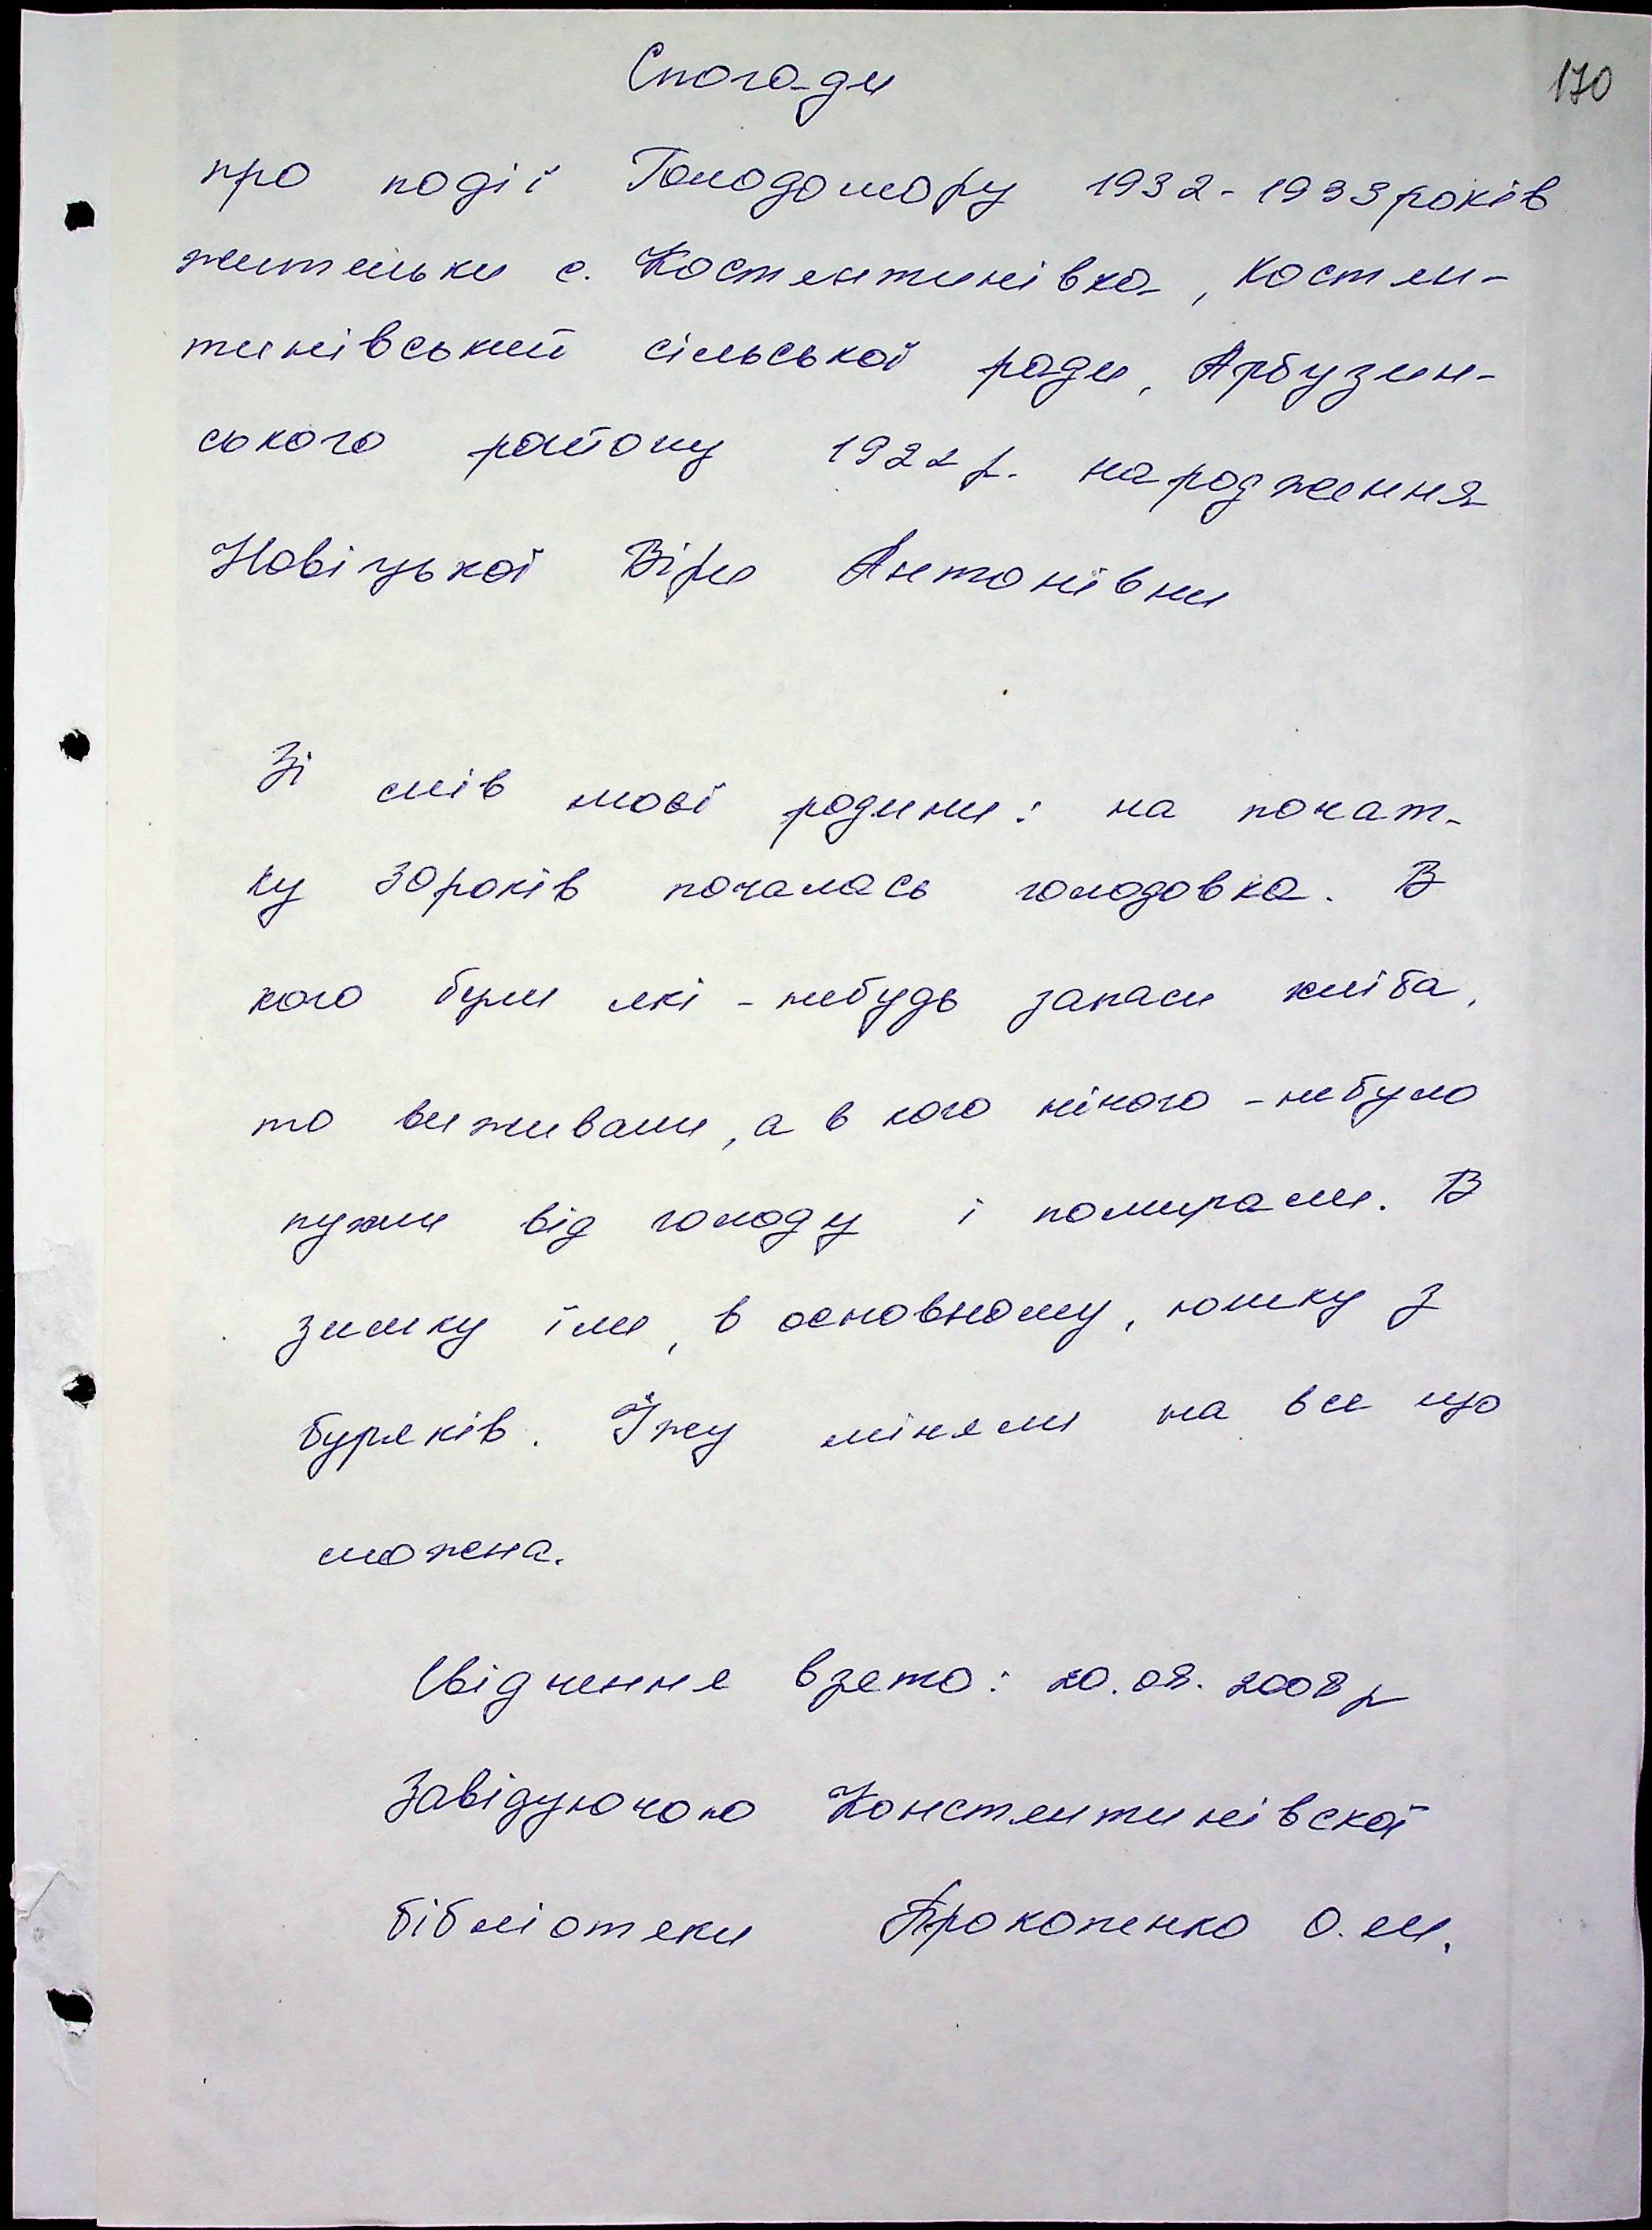 170
Спогади
про події Голодомору 1932-1933років
жительки с. Костянтинівка, Костян-
тинівський сільської ради, Арбузин-
ського району 1922 р. народження
Новіцької Віри Антонівни
Зі слів моєї родини: на почат-
ку 30років почалась голодовка. В
кого були які-небудь запаси хліба,
то виживали, а в кого нічого - небуло
пухли від голоду і помирали. В
зимку їли, в основному, юшку з
буряків. Їжу міняли на все що
можна.
Свідчення взято: 20.08.2008р
Завідуючою Констянтинівскої
бібліотеки Прокопенко О.М.